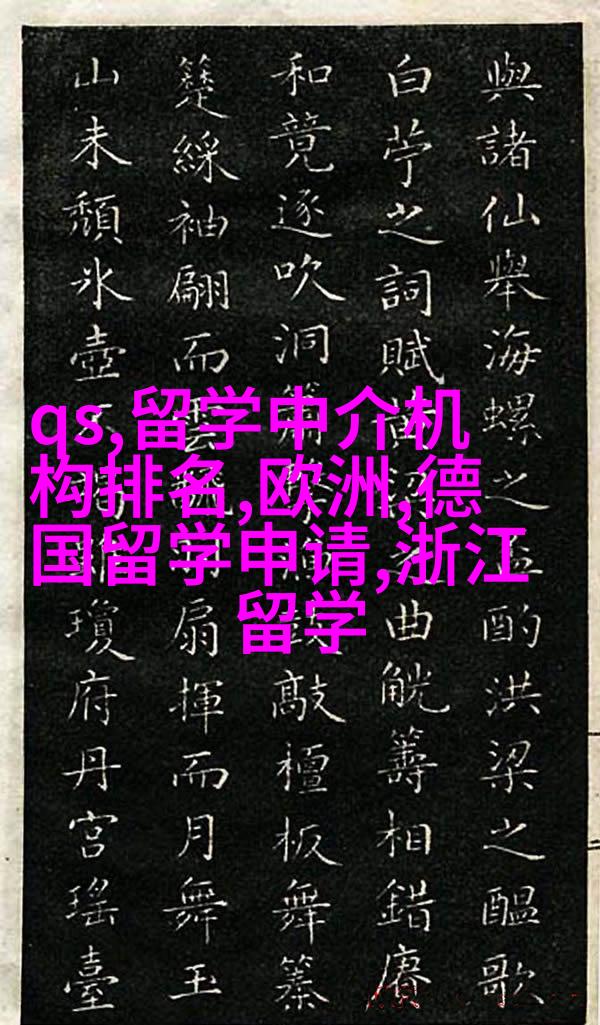 qs,留学中介机
构排名,欧洲,德
国留学申请,浙江
留学
與諸仙舉海螺之盃酌洪梁之醞歌
白苧之詞賦黃曲觥籌相錯賡
和竟逐吹洞簫鼓敲檀板舞
綵袖翩而雲扇揮而月舞玉
山未頹氷壺瓊府丹宮瑤臺